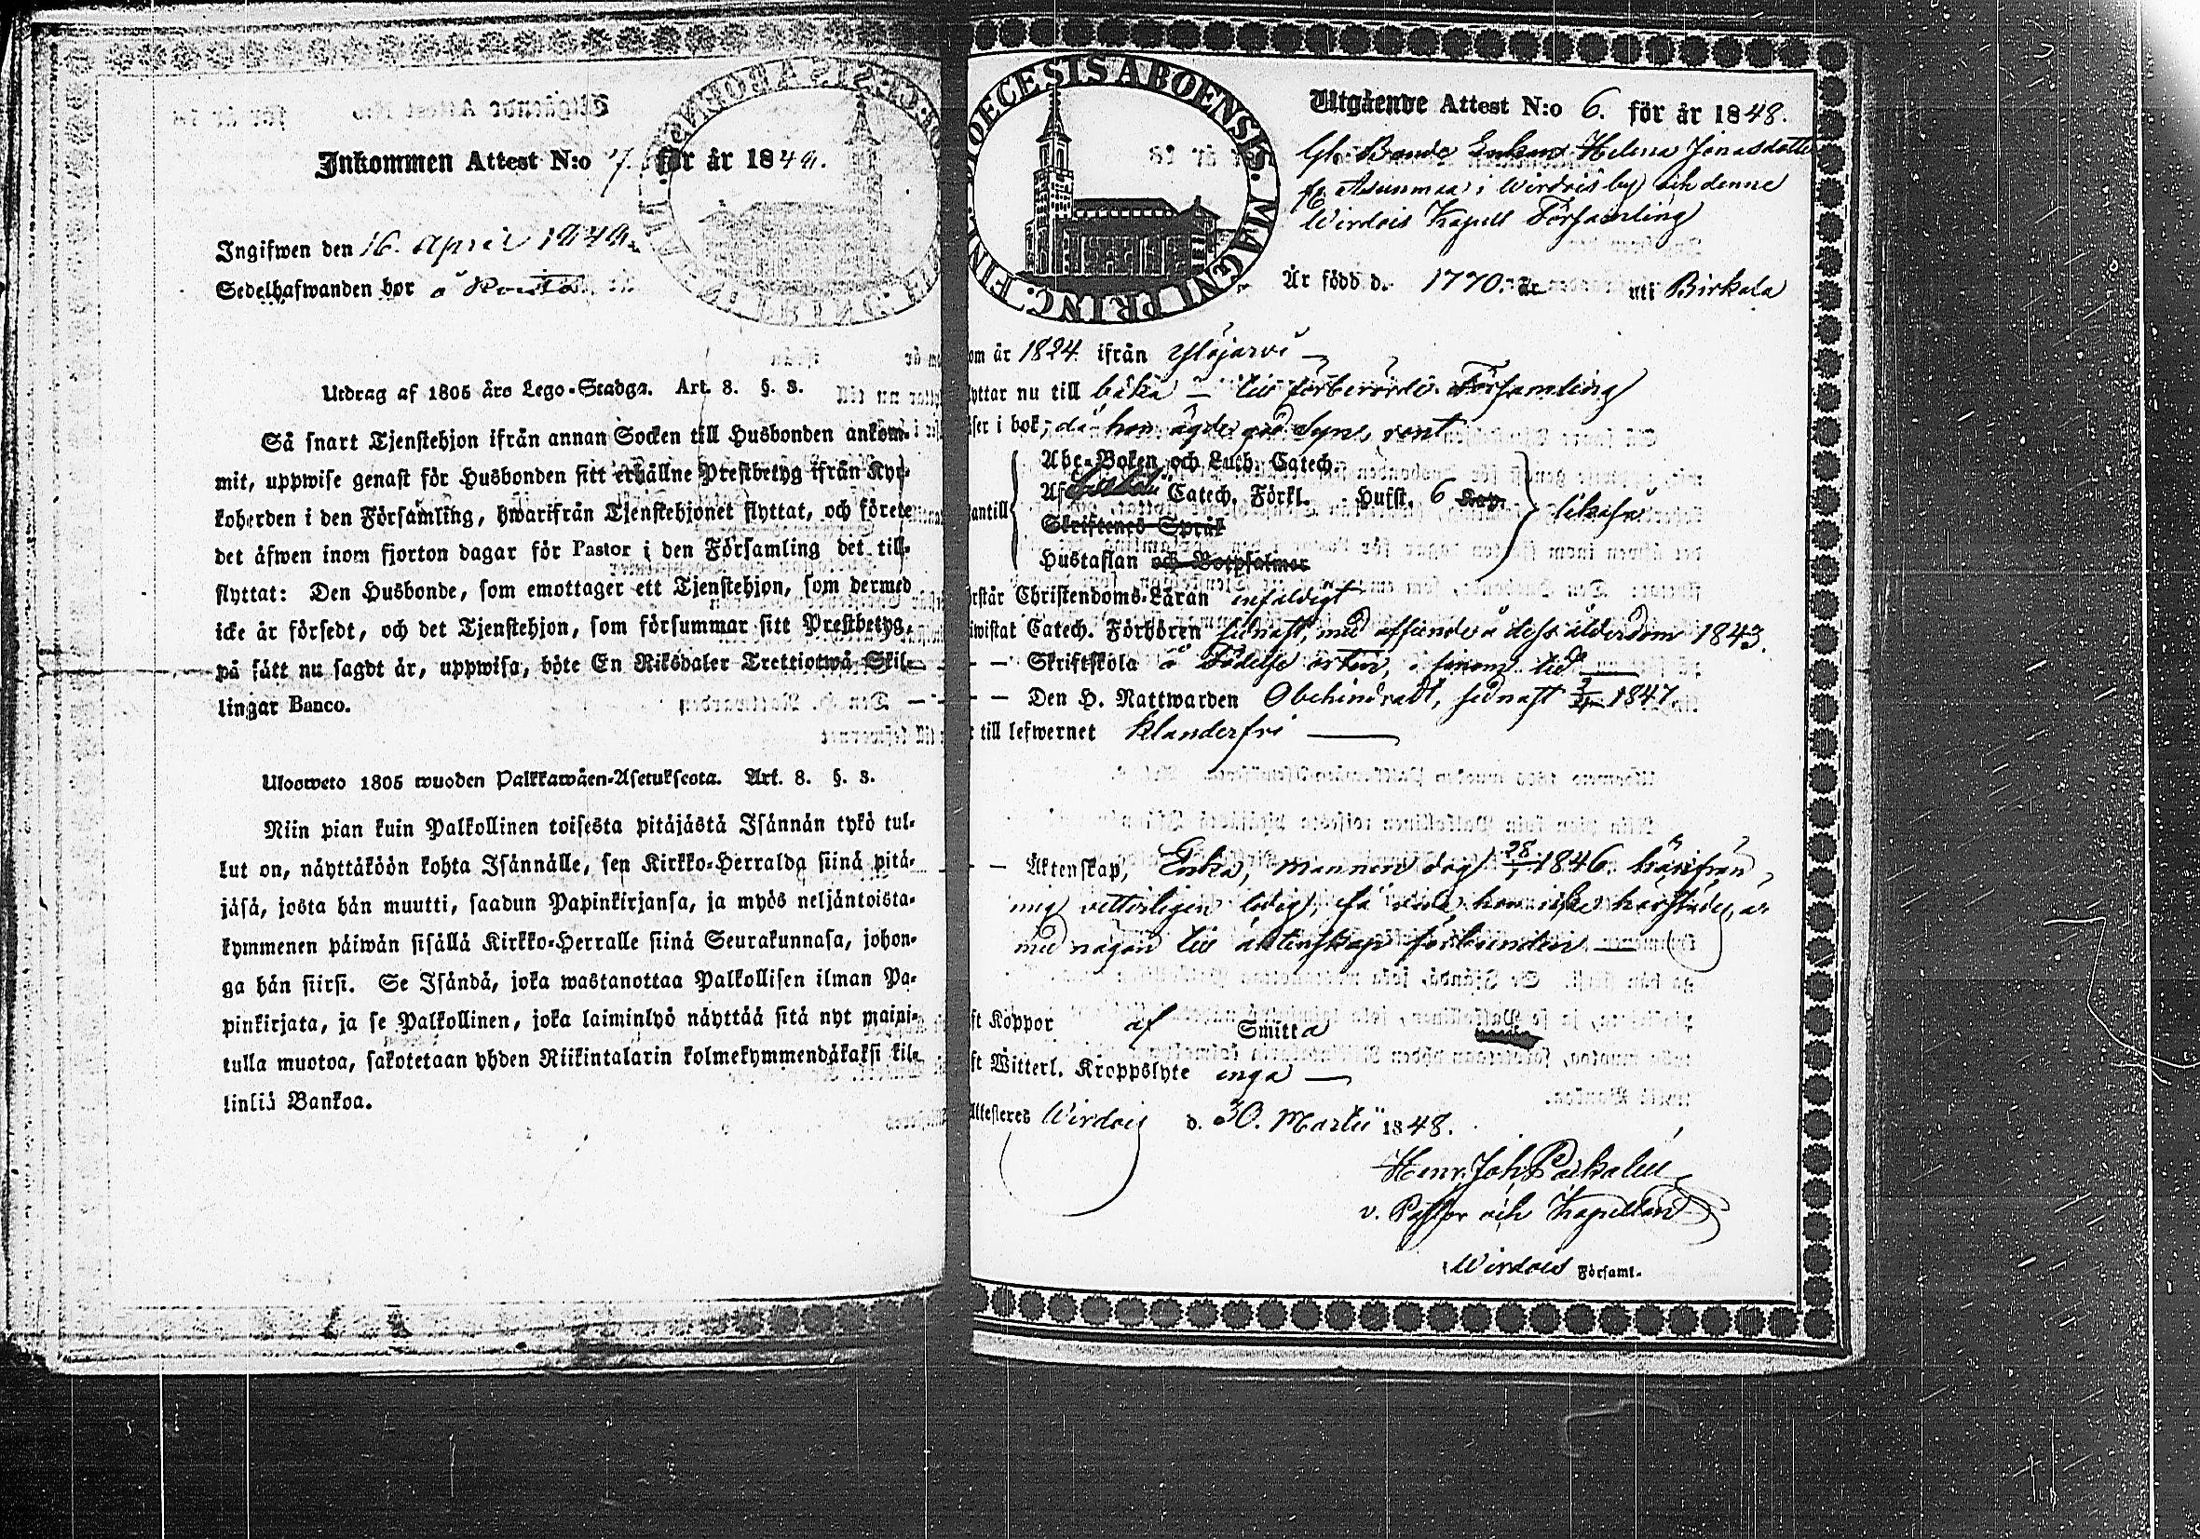 Inkommen Attest N:o 7. för år 184
Ingifwen den 16. April
Sedelhafwanden bor å
Utdrag af 1805 års Lego-Stadga. Art. 8. §. 3.
Så snart Tjenstehjon ifrån annan Socken till Husbonden ankom-
mit, uppwise genast för Husbonden sitt erhållne Prestbetyg ifrån Kyr-
koherden i den Församling, hwarifrån Tjenstehjonet flyttat, och förete
det äfwen inom fjorton dagar för Pastor i den Församling det till-
flyttat: Den Husbonde, som emottager ett Tjenstehjon, som dermed
icke är försedt, och det Tjenstehjon, som försummar sitt Prestbetyg,
på sätt nu sagdt är, uppwisa, böte En Riksdaler Trettiotwå Skil-
lingar Banco.
Ulosweto 1805 wuoden Palkkawäen-Asetuksesta. Art. 8. §. 3.
Niin pian kuin Palkollinen toisesta pitäjästä Isännän tykö tul-
lut on, näyttäköön kohta Isännälle, sen Kirkko-Herralda siinä pitä-
jäsä, josta hän muutti, saadun Papinkirjansa, ja myös neljäntoista-
kymmenen päiwän sisällä Kirkko-Herralle siinä Seurakunnasa, johon-
ga hän siirsi. Se Isändä, joka wastanottaa Palkollisen ilman Pa-
pinkirjata, ja se Palkollinen, joka laiminlyö näyttää sitä nyt maini-
tulla muotoa, sakotetaan yhden Riikintalarin kolmekymmendäkaksi kil-
linliä Bankoa.
DIOECESIS ABOENSIS. MAGNI PRINC. FINL.
Utgående Attest N:o 6. för år 1848.
Bonde Enkan Helena Jonasdotter
fr. Asunmaa i Wirdois by och denne
Wirdois Kapell Församling
Är född d. 1770 uti Birkala
om år 1824 ifrån Ylöjärvi
yttar nu till båka – till förberörde Församling
ser i bok, då hon ägde god syn, rent
antill
Abc-Boken och Luth. Catech.
Af Catech. Förkl. Hufst. 6 Kap.
Skriftenes Språk
Hustaflan och Botpsalmer
likaså
rstår Christendoms-Läran enfaldigt
iwistat Catech. Förhören sednast, med afseende å dess ålderdom 1843.
– – Skriftskola å Födelse orten, i sinom tid
– – Den H. Nattwarden Obehindradt, sednast 1847.
till lefwernet klanderfri
– – Äktenskap, Enka, mannen dog 1846. härifrån
mig vetterligen ledig, så vida hon icke
med någon till äktenskap förbunden
ft Koppor af Smitta
ft Witterl. Kroppslyte inga
Attesteres Wirdois d. 30. Martii 1848.
Henr. Joh.
v. Pastor och Kapellan
i Wirdois Församl.